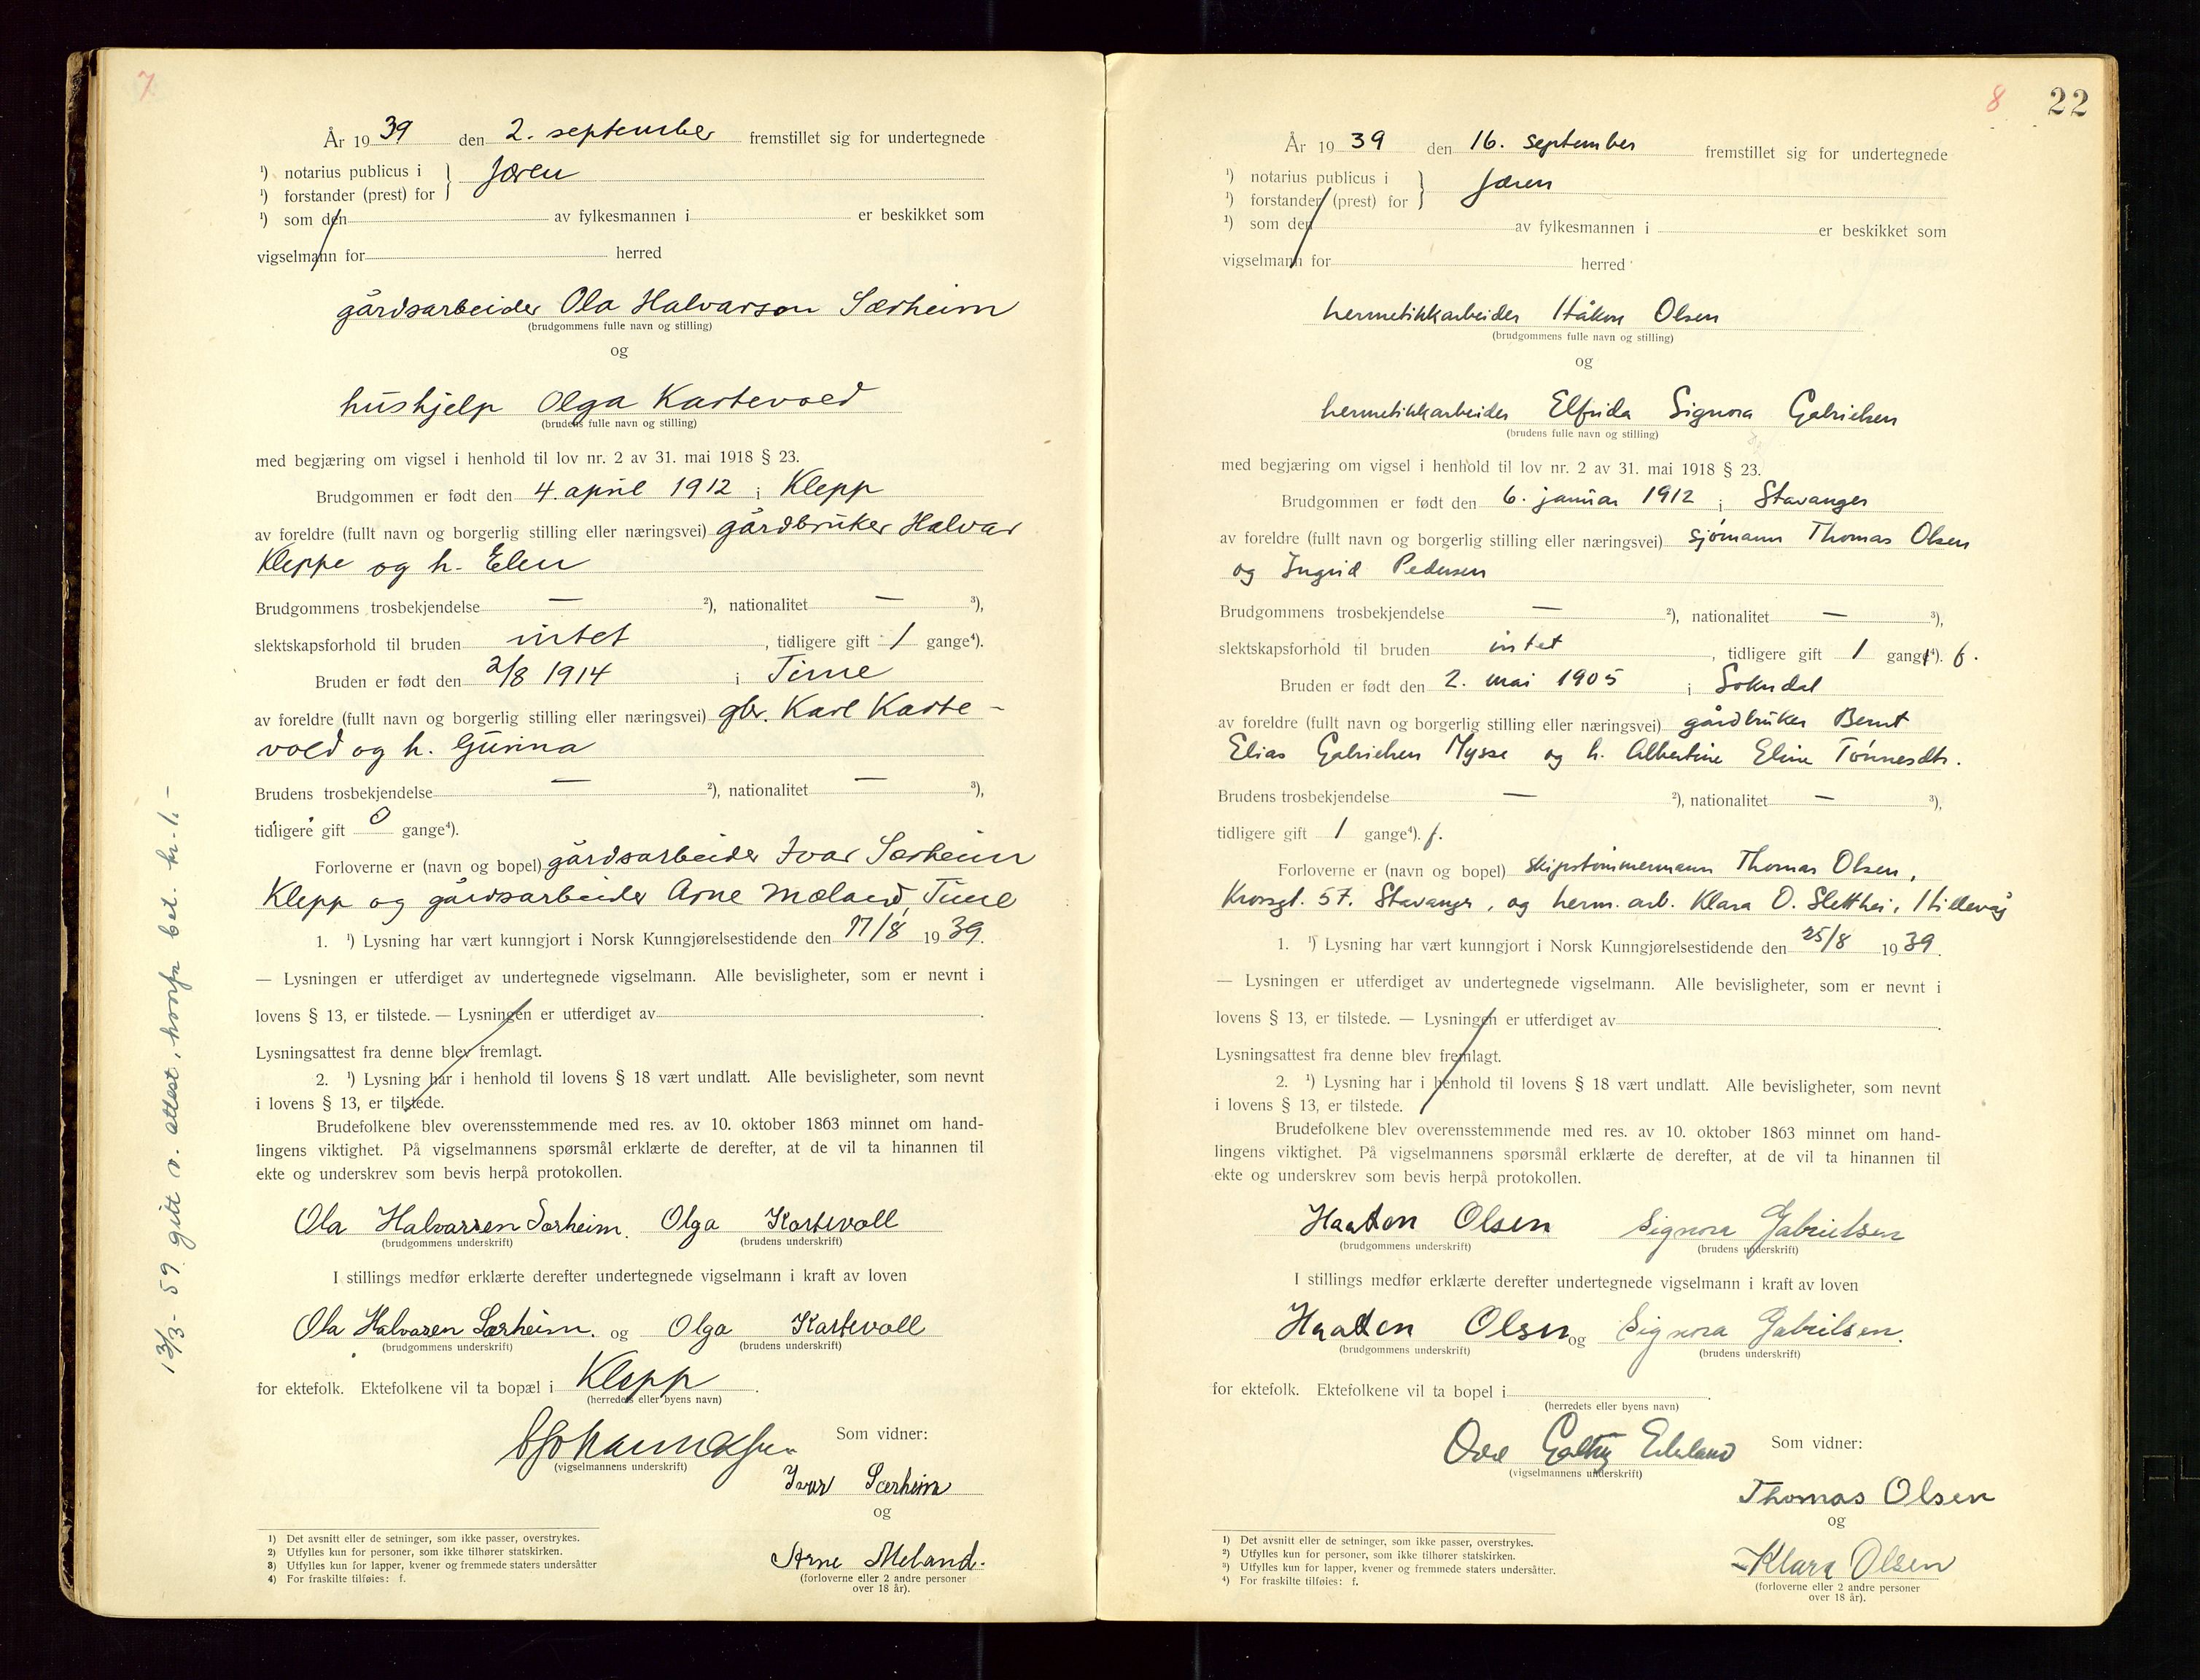 7
År 1939 den 2. september fremstillet sig for undertegnede
¹) notarius publicus i } Jæren
¹) forstander (prest) for
¹) som den av fylkesmannen i er beskikket som
vigselmann for herred
gårdsarbeider Ola Halvarson Særheim
(brudgommens fulle navn og stilling)
og
hushjelp Olga Kartevold
(brudens fulle navn og stilling)
med begjæring om vigsel i henhold til lov nr. 2 av 31. mai 1918 § 23.
Brudgommen er født den 4. april 1912 i Klepp
av foreldre (fullt navn og borgerlig stilling eller næringsvei) gårdbruker Halvar
Kleppe og h. Elen
Brudgommens trosbekjendelse — ²), nationalitet — ³),
slektskapsforhold til bruden intet, tidligere gift 1 gange⁴).
Bruden er født den 2/8 1914 i Time
av foreldre (fullt navn og borgerlig stilling eller næringsvei) gbr. Karl Karte-
vold og h. Gurina
Brudens trosbekjendelse — ²), nationalitet — ³),
tidligere gift 0 gange⁴).
Forloverne er (navn og bopel) gårdsarbeider Ivar Særheim
Klepp og gårdsarbeider Arne Mæland, Time
1. ¹) Lysning har vært kunngjort i Norsk Kunngjørelsestidende den 17/8 1939.
— Lysningen er utferdiget av undertegnede vigselmann. Alle bevisligheter, som er nevnt i
lovens § 13, er tilstede. — Lysningen er utferdiget av .
Lysningsattest fra denne blev fremlagt.
2. ¹) Lysning har i henhold til lovens § 18 vært undlatt. Alle bevisligheter, som nevnt
i lovens § 13, er tilstede.
Brudefolkene blev overensstemmende med res. av 10. oktober 1863 minnet om hand-
lingens viktighet. På vigselmannens spørsmål erklærte de derefter, at de vil ta hinannen til
ekte og underskrev som bevis herpå protokollen.
Ola Halvarsen Særheim. Olga Kartevoll
(brudgommens underskrift) (brudens underskrift)
I stillings medfør erklærte derefter undertegnede vigselmann i kraft av loven
Ola Halvarsen Særheim. og Olga Kartevoll
(brudgommens underskrift) (brudens underskrift)
for ektefolk. Ektefolkene vil ta bopæl i Klepp.
(herredets eller byens navn)
Som vidner:
(vigselmannens underskrift)
Ivar Særheim
og
Arne Meland.
(forloverne eller 2 andre personer
over 18 år).
1) Det avsnitt eller de setninger, som ikke passer, overstrykes.
2) Utfylles kun for personer, som ikke tilhører statskirken.
3) Utfylles kun for lapper, kvener og fremmede staters undersåtter
4) For fraskilte tilføies: f.
13/3-59 gitt v. attest, hvorfr bet. kr 1.-
8 22
År 1939 den 16. september fremstillet sig for undertegnede
¹) notarius publicus i } Jæren
¹) forstander (prest) for
¹) som den av fylkesmannen i er beskikket som
vigselmann for herred
hermetikkarbeider Håkon Olsen
(brudgommens fulle navn og stilling)
og
hermetikkarbeider Elfrida Signora Gabrielsen
(brudens fulle navn og stilling)
med begjæring om vigsel i henhold til lov nr. 2 av 31. mai 1918 § 23.
Brudgommen er født den 6. januar 1912 i Stavanger
av foreldre (fullt navn og borgerlig stilling eller næringsvei) sjømann Thomas Olsen
og Ingrid Pedersen
Brudgommens trosbekjendelse — ²), nationalitet — ³),
slektskapsforhold til bruden intet, tidligere gift 1 gange⁴). f.
Bruden er født den 2. mai 1905 i Sokndal
av foreldre (fullt navn og borgerlig stilling eller næringsvei) gårdbruker Bernt
Elias Gabrielsen Mysse og h. Albertine Eline Tønnesdtr.
Brudens trosbekjendelse — ²), nationalitet — ³),
tidligere gift 1 gange⁴). f.
Forloverne er (navn og bopel) skipstømmermann Thomas Olsen,
Krossgt. 57. Stavanger, og herm. arb. Klara O. Sletthei, Hillevåg
1. ¹) Lysning har vært kunngjort i Norsk Kunngjørelsestidende den 25/8 1939.
— Lysningen er utferdiget av undertegnede vigselmann. Alle bevisligheter, som er nevnt i
lovens § 13, er tilstede. — Lysningen er utferdiget av .
Lysningsattest fra denne blev fremlagt.
2. ¹) Lysning har i henhold til lovens § 18 vært undlatt. Alle bevisligheter, som nevnt
i lovens § 13, er tilstede.
Brudefolkene blev overensstemmende med res. av 10. oktober 1863 minnet om hand-
lingens viktighet. På vigselmannens spørsmål erklærte de derefter, at de vil ta hinannen til
ekte og underskrev som bevis herpå protokollen.
Haakon Olsen Signora Gabrielsen
(brudgommens underskrift) (brudens underskrift)
I stillings medfør erklærte derefter undertegnede vigselmann i kraft av loven
Haakon Olsen og Signora Gabrilsen.
(brudgommens underskrift) (brudens underskrift)
for ektefolk. Ektefolkene vil ta bopel i .
(herredets eller byens navn)
Ove Eckland Som vidner:
(vigselmannens underskrift)
Thomas Olsen
og
Klara Olsen
(forloverne eller 2 andre personer
over 18 år).
1) Det avsnitt eller de setninger, som ikke passer, overstrykes.
²) Utfylles kun for personer, som ikke tilhører statskirken.
³) Utfylles kun for lapper, kvener og fremmede staters undersåtter.
⁴) For fraskilte tilføies: f.